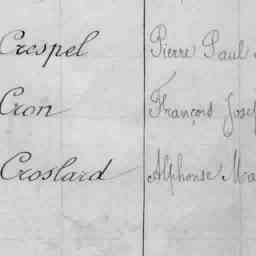 Crespel Pierre Paul
Cron François Josep
Croslard Alphonse Ma